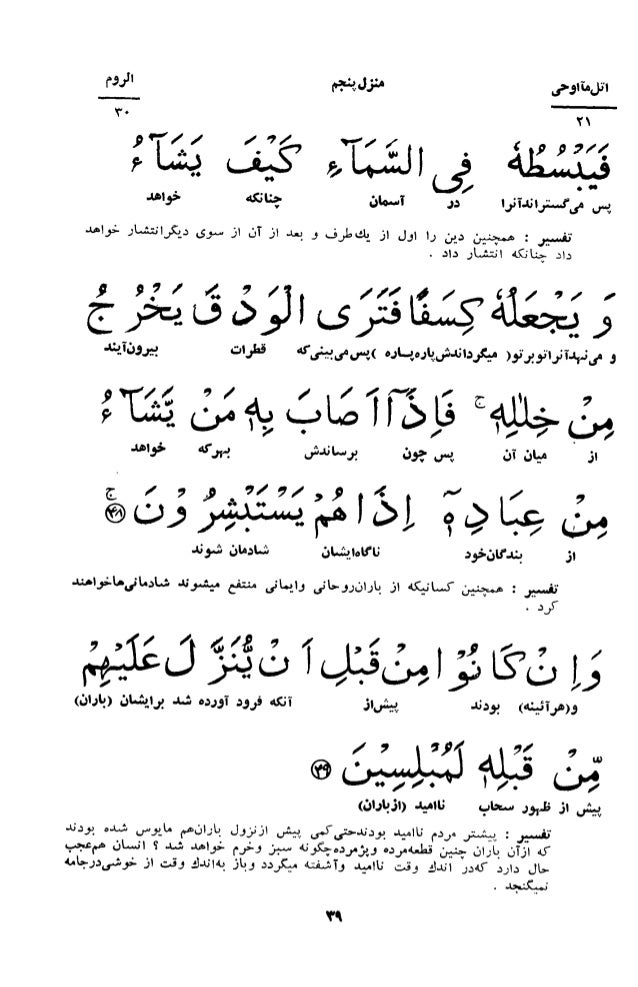 الروم منزل پنجم اتل مآ اوحی
۳۰ ۲۱
فَيَبْسُطُهٗ فِي السَّمَآءِ كَيْفَ يَشَآءُ
پس می‌گستراند آنرا در آسمان چنانکه خواهد
تفسیر : همچنین دین را اول از یك طرف و بعد از آن از سوی دیگر انتشار خواهد
داد چنانکه انتشار داد .
وَ يَجْعَلُهٗ كِسَفًا فَتَرَى الْوَدْقَ يَخْرُجُ
و می‌نهد آنرا توبرتو( میگرداندش پاره پاره )پس می بینی که قطرات بیرون آیند
مِنْ خِلٰلِهٖ ۚ فَاِذَآ اَصَابَ بِهٖ مَنْ يَّشَآءُ
از میان آن پس چون برساندش بهر که خواهد
مِنْ عِبَادِهٖٓ اِذَا هُمْ يَسْتَبْشِرُوْنَ ۚ ۴۸
از بندگان خود ناگاه ایشان شادمان شوند
تفسیر : همچنین کسانیکه از باران روحانی وایمانی منتفع میشوند شادمانی‌ها خواهند
کرد .
وَاِنْ كَانُوْا مِنْ قَبْلِ اَنْ يُّنَزَّلَ عَلَيْهِمْ
و(هرآئینه) بودند پیش‌از آنکه فرود آورده شد برایشان (باران)
مِّنْ قَبْلِهٖ لَمُبْلِسِيْنَ ۴۹
پیش از ظهور سحاب ناامید (از باران)
تفسیر : پیشتر مردم ناامید بودند حتی کمی پیش از نزول باران هم مایوس شده بودند
که از آن باران چنین قطعه مرده و پژمرده چگونه سبز وخرم خواهد شد ؟ انسان هم عجب
حال دارد که در اندك وقت ناامید و آشفته میگردد وباز به اندك وقت از خوشی در جامه
نمیگنجد .
۳۹